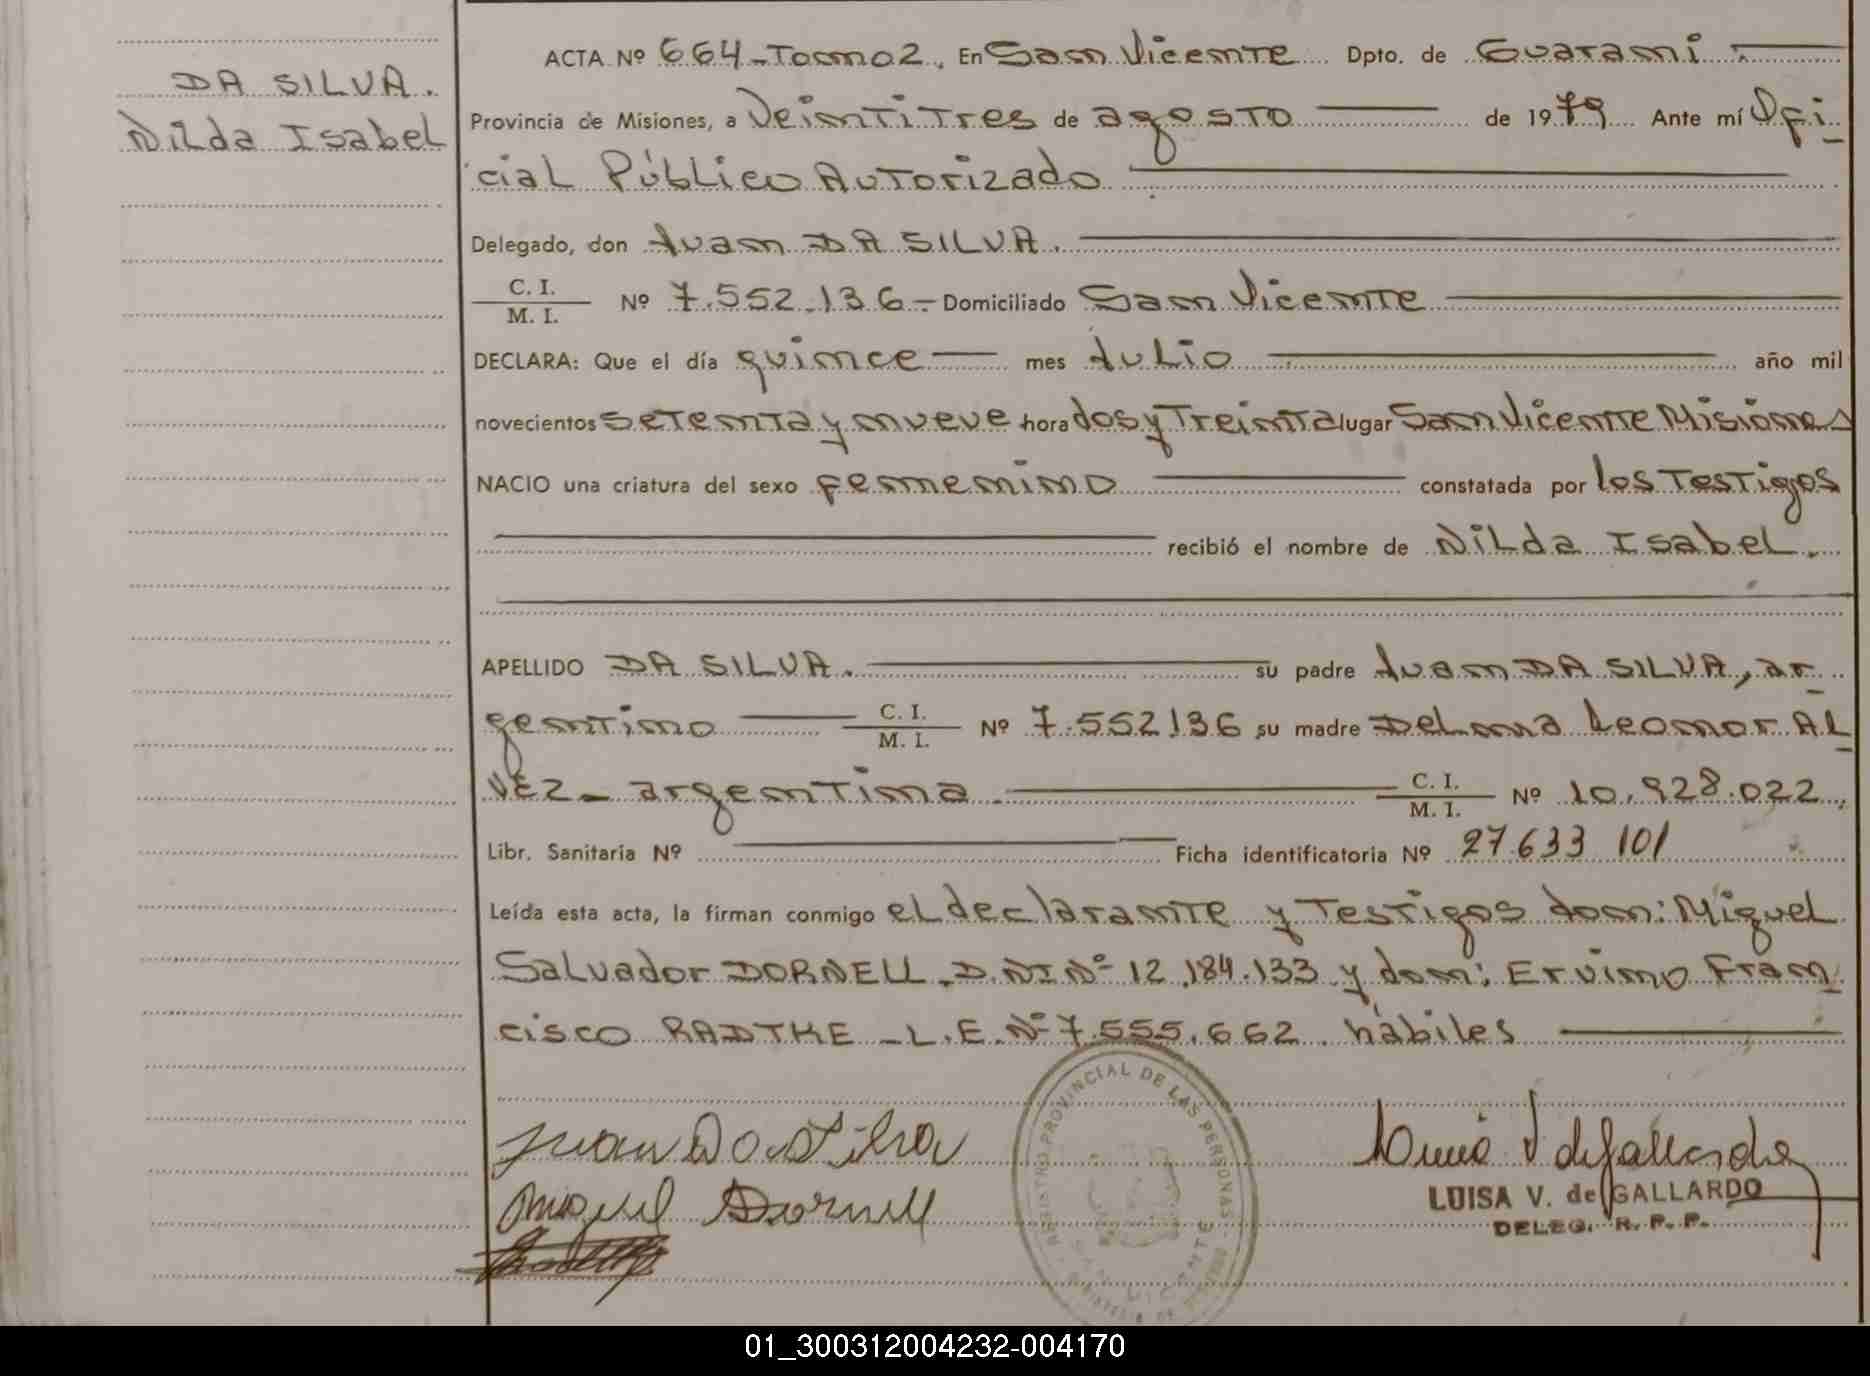 DA SILVA.
Nilda Isabel
ACTA Nº 664-Tomo2. En San Vicente Dpto. de Guaraní
Provincia de Misiones, a Veintitres de agosto de 1979 Ante mí Ofi-
cial Público Autorizado
Delegado, don Juan DA SILVA.
C. I.
M. I. Nº 7.552.136- Domiciliado San Vicente
DECLARA: Que el día quince mes Julio año mil
novecientos setenta y nueve hora dos y Treinta lugar San Vicente Misiones
NACIO una criatura del sexo femenino constatada por los Testigos
recibió el nombre de Nilda Isabel.
APELLIDO DA SILVA. su padre Juan DA SILVA, ar-
gentino C. I. M. I. Nº 7.552.136 su madre Delma Leonor AL
VEZ- argentina C. I. M. I. Nº 10.928.022
Libr. Sanitaria Nº Ficha identificatoria Nº 27.633 101
Leída esta acta, la firman conmigo el declarante y Testigos don: Miguel
Salvador DORNELL. D.NI Nº 12.184.133 y don: Ervino Fran-
cisco RADTKE - L.E. Nº 7.555.662. hábiles
Juan Da Silva
Miguel Dornell
REGISTRO PROVINCIAL DE LAS PERSONAS
LUISA V. de GALLARDO
DELEG. R. P. P.
01_300312004232-004170